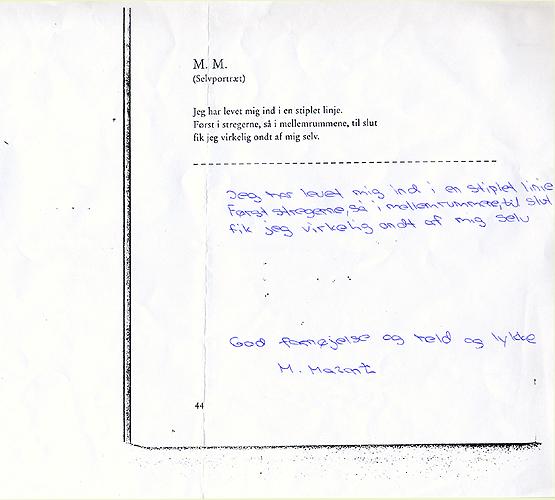 M. M.
(Selvportræt)
Jeg har levet mig ind i en stiplet linje.
Først i stregerne, så i mellemrummene, til slut
fik jeg virkelig ondt af mig selv.
Jeg har levet mig ind i en stiplet linie
Først stregerne, så i mellemrummene, til slut
fik jeg virkelig ondt af mig selv
God fornøjelse og held og lykke
M.
44